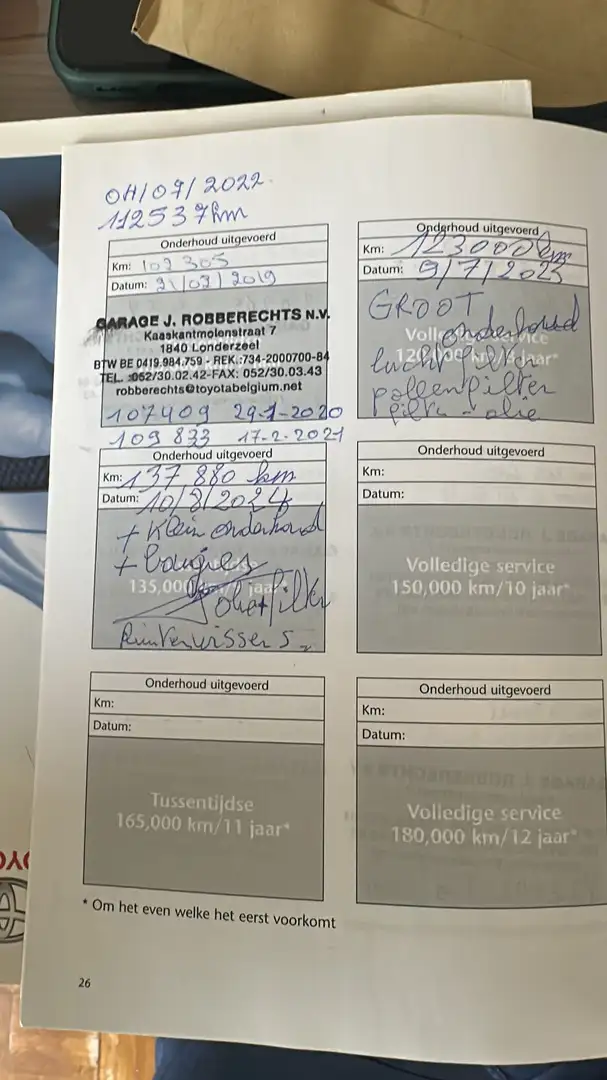 OH/07/2022
112537km
Onderhoud uitgevoerd
Km: 102 305
Datum: 21/03/2019
GARAGE J. ROBBERECHTS N.V.
Kaaskantmolenstraat 7
1840 Londerzeel
BTW BE 0419.984.759 - REK.:734-2000700-84
TEL. :052/30.02.42-FAX: 052/30.03.43
robberechts@toyotabelgium.net
107409 29-1-2020
109 833 17-2-2021
Onderhoud uitgevoerd
Km: 123000km
Datum: 9/7/2023
GROOT
onderhoud
Volledige service
120,000 km/8 jaar*
luchtfilter
pollenfilter
filtre - olie
Onderhoud uitgevoerd
Km: 137,880 km
Datum: 10/8/2024
+ Klein onderhoud
+ bougies
135,000 km/9 jaar*
olie+filter
Ruitenwissers
Onderhoud uitgevoerd
Km:
Datum:
Volledige service
150,000 km/10 jaar*
Onderhoud uitgevoerd
Km:
Datum:
Tussentijdse
165,000 km/11 jaar*
Onderhoud uitgevoerd
Km:
Datum:
Volledige service
180,000 km/12 jaar*
* Om het even welke het eerst voorkomt
26